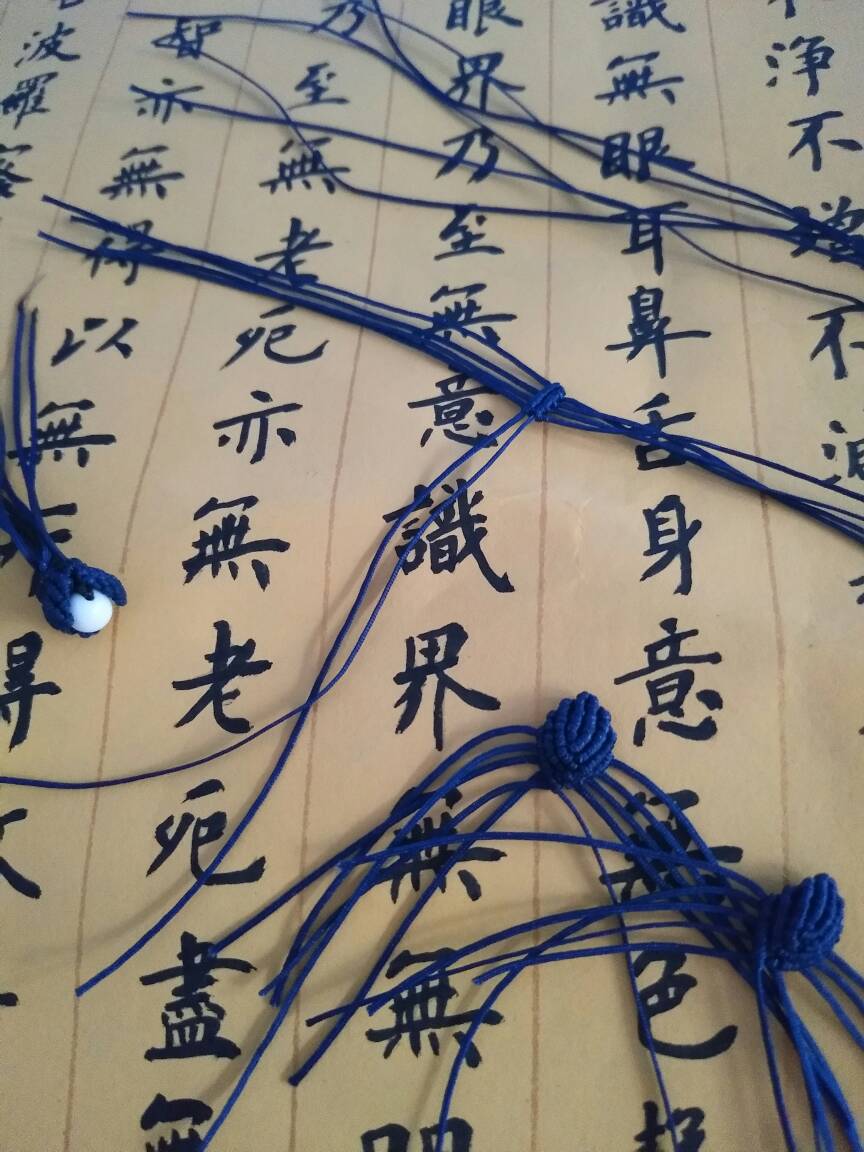 淨不增不減
識無眼耳鼻舌身意無色
眼界乃至無意識界無無明
乃至無老死亦無老死盡無
智亦無得以無所得故
波羅蜜